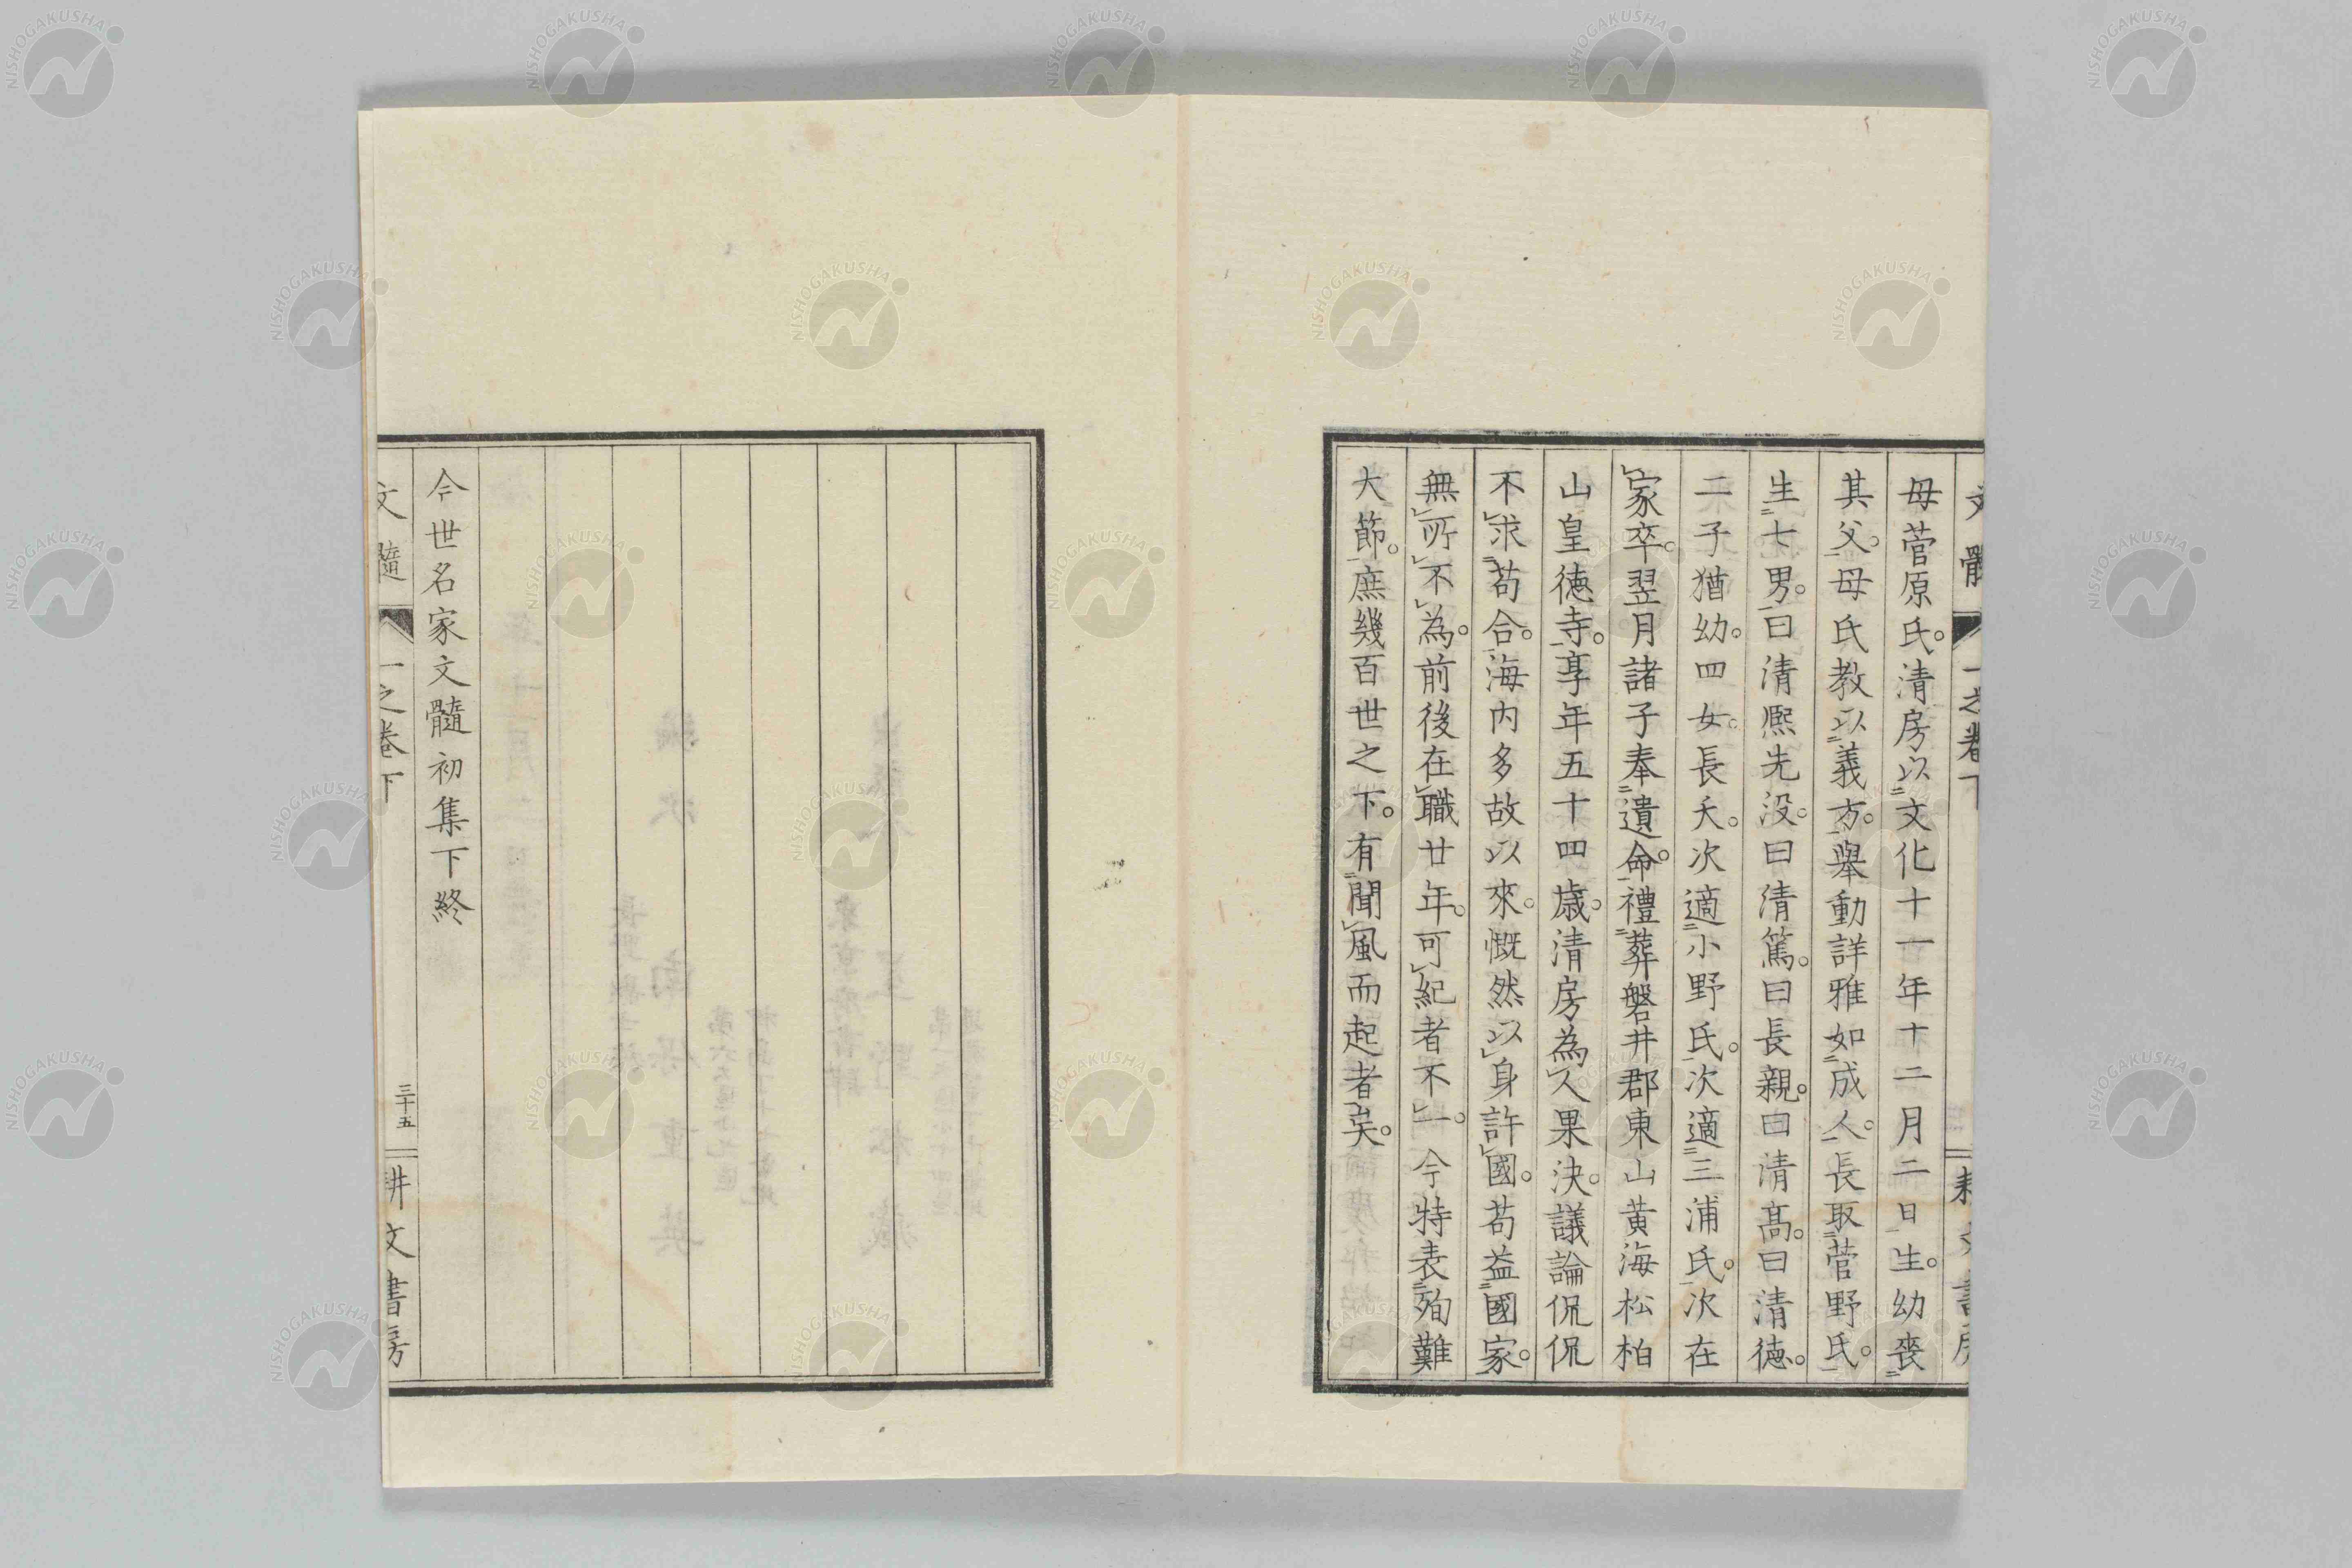 母菅原氏。清房以文化十一年十二月二日生。幼喪
其父。母氏教以義方。舉動詳雅如成人。長取菅野氏。
生七男。曰清熈先没。曰清篤。曰長親。曰清髙。曰清德。
二子猶幼。四女。長夭。次適小野氏。次適三浦氏。次在
家卒。翌月諸子奉遺命。禮葬磐井郡東山黄海松柏
山皇德寺。享年五十四歳。清房為人果決。議論侃侃
不求苟合。海内多故以來。慨然以身許國。苟益國家。
無所不為。前後在職廿年。可紀者不一。今特表殉難
大節。庶幾百世之下。有聞風而起者矣。
今世名家文髓初集下終
文髓
一之卷下
三十五
耕文書房